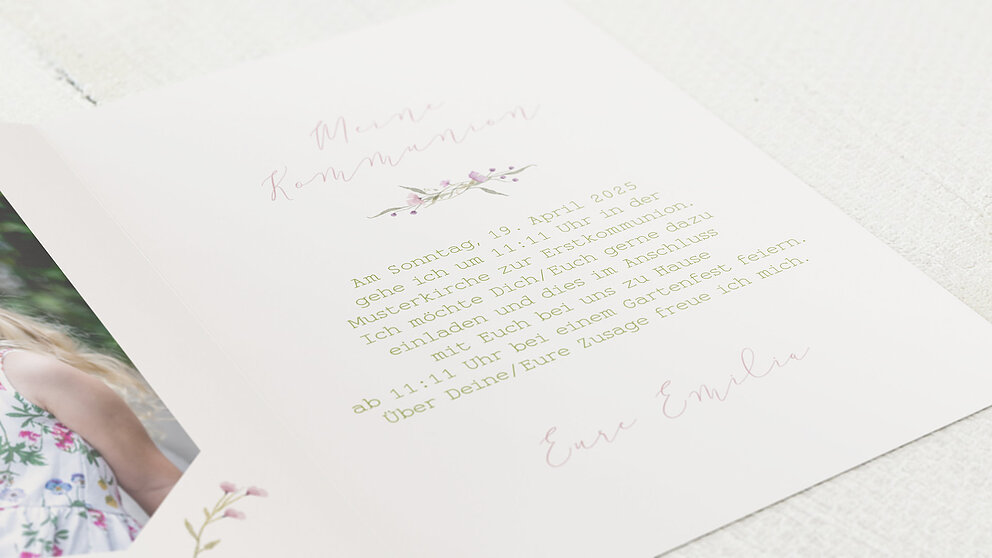 Meine
Kommunion
Am Sonntag, 19. April 2025
gehe ich um 11:11 Uhr in der
Musterkirche zur Erstkommunion.
Ich möchte Dich/Euch gerne dazu
einladen und dies im Anschluss
mit Euch bei uns zu Hause
ab 11:11 Uhr bei einem Gartenfest feiern.
Über Deine/Eure Zusage freue ich mich.
Eure Emilia